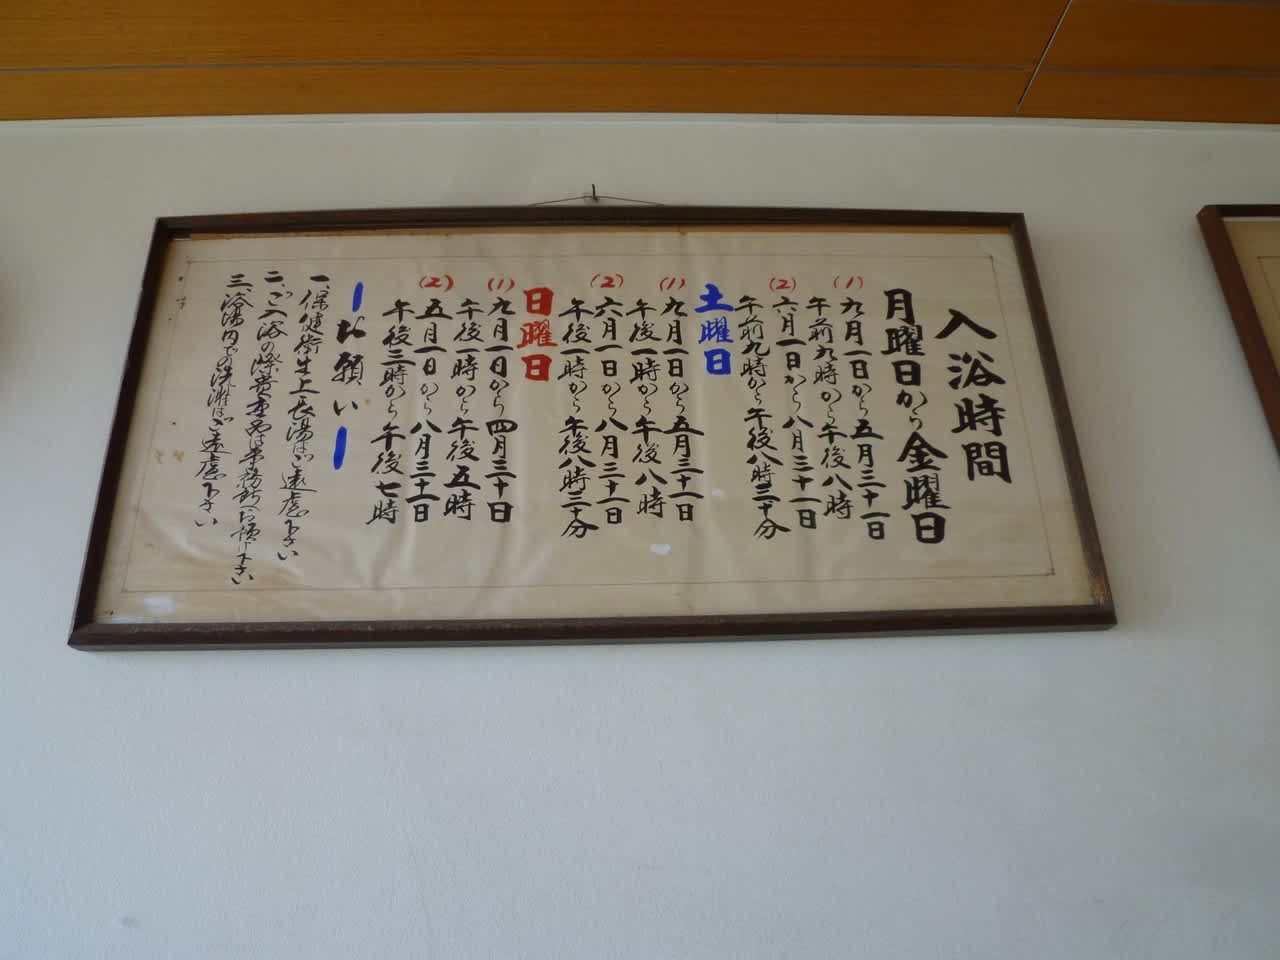 入浴時間
月曜日から金曜日
(1)九月一日から五月三十一日
午前九時から午後八時
(2)六月一日から八月三十一日
午前九時から午後八時三十分
土曜日
(1)九月一日から五月三十一日
午後一時から午後八時
(2)六月一日から八月三十一日
午後一時から午後八時三十分
日曜日
(1)九月一日から四月三十日
午後一時から午後五時
(2)五月一日から八月三十一日
午後三時から午後七時
ーお願いー
一、保健衛生上長湯はご遠慮下さい
二、ご入浴の際貴重品は事務所へお預け下さい
三、浴場内での洗濯はご遠慮下さい